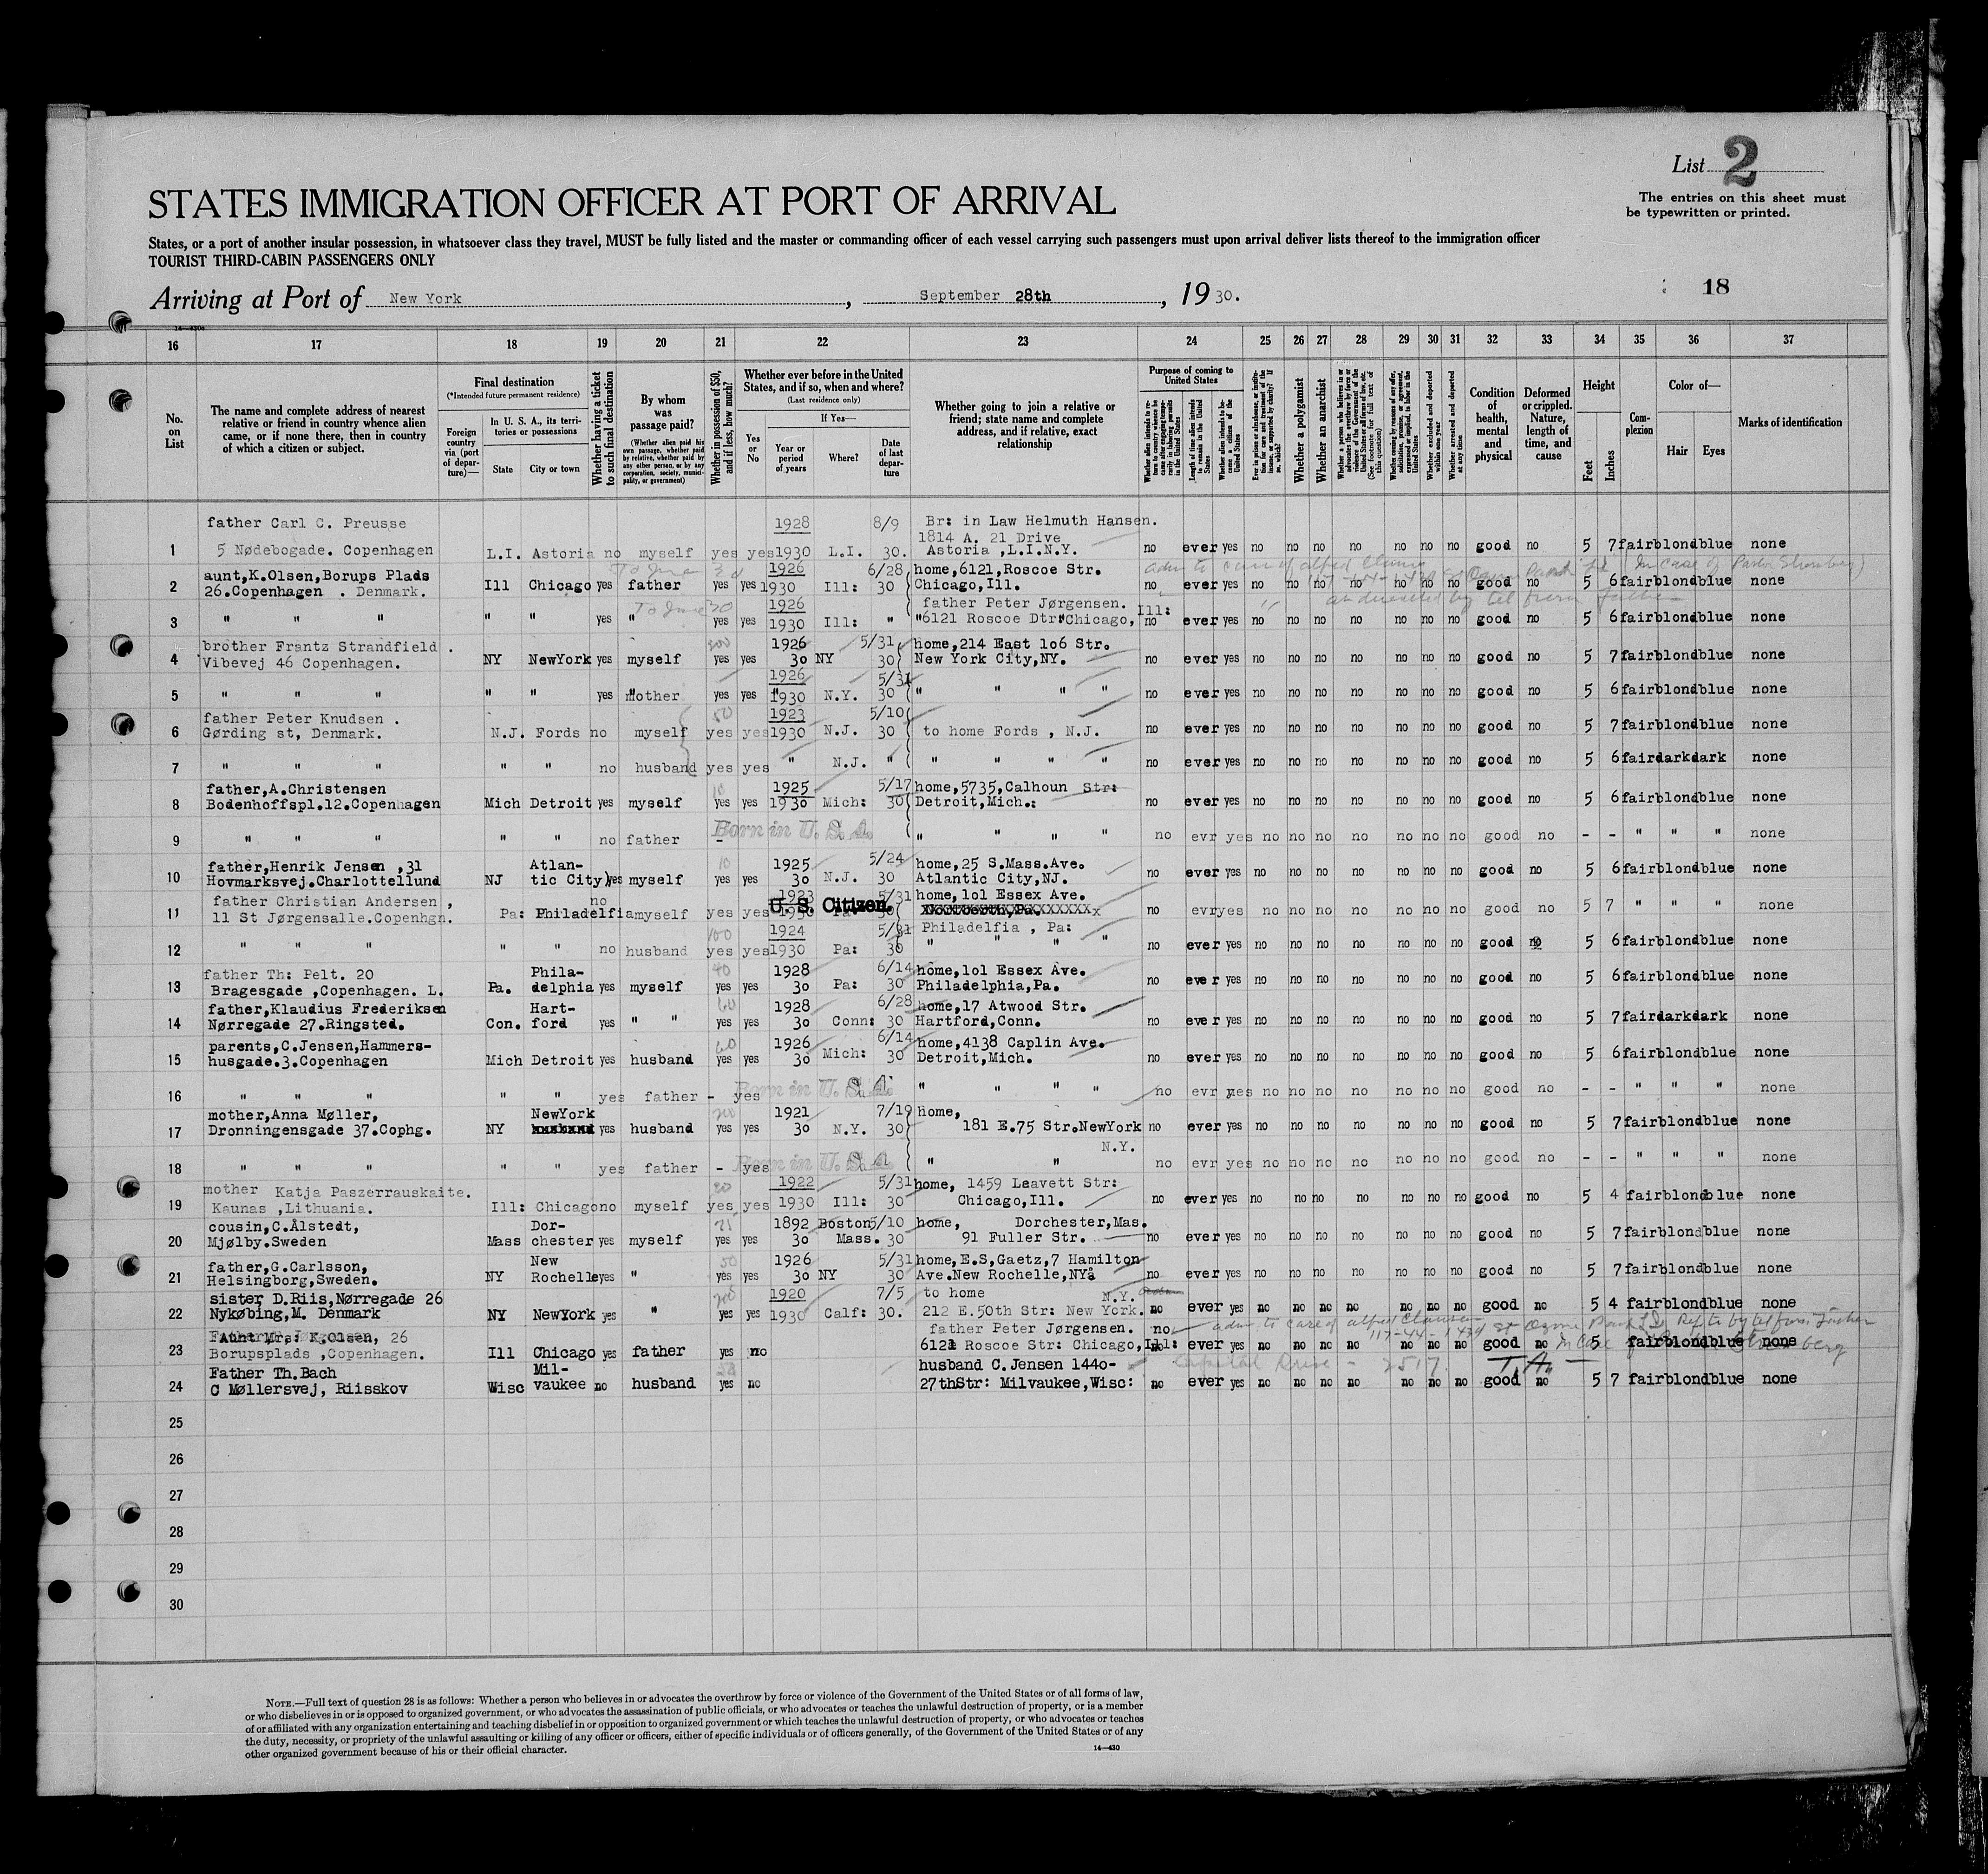 List 2
The entries on this sheet must
be typewritten or printed.
STATES IMMIGRATION OFFICER AT PORT OF ARRIVAL
States, or a port of another insular possession, in whatsoever class they travel, MUST be fully listed and the master or commanding officer of each vessel carrying such passengers must upon arrival deliver lists thereof to the immigration officer
TOURIST THIRD-CABIN PASSENGERS ONLY
Arriving at Port of New York, September 28th, 1930.
18
16 17 18 19 20 21 22 23 24 25 26 27 28 29 30 31 32 33 34 35 36 37
No. on List
The name and complete address of nearest relative or friend in country whence alien came, or if none there, then in country of which a citizen or subject.
Final destination
(*Intended future permanent residence)
Foreign country via (port of departure)—
In U. S. A., its territories or possessions
State
City or town
Whether having a ticket to such final destination
By whom was passage paid?
(Whether alien paid his own passage, whether paid by relative, whether paid by any other person, or by any corporation, society, municipality, or government)
Whether in possession of $50, and if less, how much?
Whether ever before in the United States, and if so, when and where?
(Last residence only)
Yes or No
If Yes—
Year or period of years
Where?
Date of last departure
Whether going to join a relative or friend; state name and complete address, and if relative, exact relationship
Purpose of coming to United States
Whether a polygamist
Whether an anarchist
Whether excluded and deported within one year
Whether arrested and deported at any time
Condition of health, mental and physical
Deformed or crippled. Nature, length of time, and cause
Height
Feet
Inches
Complexion
Color of—
Hair
Eyes
Marks of identification
father Carl C. Preusse 1928 8/9 Br: in Law Helmuth Hansen.
1814 A. 21 Drive
1 5 Nødebogade. Copenhagen L.I. Astoria no myself yes yes 1930 L.I. 30. Astoria ,L.I.N.Y. no ever yes no no no no no no no good no 5 7 fair blond blue none
aunt,K.Olsen,Borups Plads 1926 6/28 home,6121,Roscoe Str.
2 26.Copenhagen . Denmark. Ill Chicago yes father yes yes 1930 Ill: 30 Chicago,Ill. no ever yes no no no no no no no good no 5 6 fair blond blue none
1926 father Peter Jørgensen. Ill:
3 " " " " " yes " yes yes 1930 Ill: " "6121 Roscoe Dtr"Chicago, no ever yes no no no no no no no good no 5 6 fair blond blue none
brother Frantz Strandfield . 1926 5/31 home,214 East 1o6 Str.
4 Vibevej 46 Copenhagen. NY NewYork yes myself yes yes 30 NY 30 New York City,NY. no ever yes no no no no no no no good no 5 7 fair blond blue none
1926 5/31
5 " " " " " yes mother yes yes 1930 N.Y. 30 " " " " no ever yes no no no no no no no good no 5 6 fair blond blue none
father Peter Knudsen . 50 1923 5/10
6 Gørding st, Denmark. N.J. Fords no myself yes yes 1930 N.J. 30 to home Fords , N.J. no ever yes no no no no no no no good no 5 7 fair blond blue none
7 " " " " " no husband yes yes " N.J. " " " " " no ever yes no no no no no no no good no 5 6 fair dark dark none
father,A.Christensen 1925 5/17 home,5735,Calhoun Str:
8 Bodenhoffspl.12.Copenhagen Mich Detroit yes myself yes yes 1930 Mich: 30 Detroit,Mich.: no ever yes no no no no no no no good no 5 6 fair blond blue none
Born in U. S. A.
9 " " " " " no father - " " " " no evr yes no no no no no no no good no - - " " " none
father,Henrik Jensen ,31 Atlan- 10 1925 5/24 home,25 S.Mass.Ave.
10 Hovmarksvej.Charlottellund NJ tic City) yes myself yes yes 30 N.J. 30 Atlantic City,NJ. no ever yes no no no no no no no good no 5 6 fair blond blue none
father Christian Andersen , no 1923 5/31 home,1o1 Essex Ave.
U. S. Citizen.
11 11 St Jørgensalle.Copenhgn. Pa: Philadelfia myself yes yes 1930 Pa: 30 no evr yes no no no no no no no good no 5 7 " " " none
100 1924 5/31 Philadelfia , Pa:
12 " " " " " no husband yes yes 1930 Pa: 30 " " " " no ever yes no no no no no no no good no 5 6 fair blond blue none
father Th: Pelt. 20 Phila- 40 1928 6/14 home,1o1 Essex Ave.
13 Bragesgade ,Copenhagen. L. Pa. delphia yes myself yes yes 30 Pa: 30 Philadelphia,Pa. no ever yes no no no no no no no good no 5 6 fair blond blue none
father,Klaudius Frederiksen Hart- 60 1928 6/28 home,17 Atwood Str.
14 Nørregade 27.Ringsted. Con. ford yes " " yes yes 30 Conn: 30 Hartford,Conn. no ever yes no no no no no no no good no 5 7 fair dark dark none
parents,C.Jensen,Hammers- 60 1926 6/14 home,4138 Caplin Ave.
15 husgade.3.Copenhagen Mich Detroit yes husband yes yes 30 Mich: 30 Detroit,Mich. no ever yes no no no no no no no good no 5 6 fair blond blue none
Born in U. S. A.
16 " " " " " yes father - yes " " " " no evr yes no no no no no no no good no - - " " " none
mother,Anna Møller, NewYork 1921 7/19 home,
17 Dronningensgade 37.Cophg. NY yes husband yes yes 30 N.Y. 30 181 E.75 Str.NewYork no ever yes no no no no no no no good no 5 7 fair blond blue none
N.Y.
Born in U. S. A.
18 " " " " " yes father - yes " " no evr yes no no no no no no no good no - - " " " none
mother Katja Paszerrauskaite. 1922 5/31 home, 1459 Leavett Str:
19 Kaunas ,Lithuania. Ill: Chicago no myself yes yes 1930 Ill: 30 Chicago,Ill. no ever yes no no no no no no no good no 5 4 fair blond blue none
cousin,C.Ålstedt, Dor- 1892 Boston 5/10 home, Dorchester,Mas.
20 Mjølby.Sweden Mass chester yes myself yes yes 30 Mass. 30 91 Fuller Str. no ever yes no no no no no no no good no 5 7 fair blond blue none
father,G.Carlsson, New 50 1926 5/31 home,E.S,Gaetz,7 Hamilton
21 Helsingborg,Sweden. NY Rochelle yes " yes yes 30 NY 30 Ave.New Rochelle,NYå no ever yes no no no no no no no good no 5 7 fair blond blue none
sister D.Riis,Nørregade 26 1920 7/5 to home N.Y.
22 Nykøbing,M. Denmark NY NewYork yes " yes yes 1930 Calf: 30. 212 E.50th Str: New York. no ever yes no no no no no no no good no 5 4 fair blond blue none
Aunt Mrs: K.Olsen, 26 father Peter Jørgensen. no
23 Borupsplads ,Copenhagen. Ill Chicago yes father yes no 6121 Roscoe Str: Chicago,Ill: ever yes no no no no no no no good no 5 fair blond blue none
Father Th.Bach Mil- husband C.Jensen 144o-
24 C Møllersvej, Riisskov Wisc vaukee no husband yes no 27thStr: Milvaukee,Wisc: no ever yes no no no no no no no good no 5 7 fair blond blue none
25
26
27
28
29
30
NOTE.—Full text of question 28 is as follows: Whether a person who believes in or advocates the overthrow by force or violence of the Government of the United States or of all forms of law,
or who disbelieves in or is opposed to organized government, or who advocates the assassination of public officials, or who advocates or teaches the unlawful destruction of property, or is a member
of or affiliated with any organization entertaining and teaching disbelief in or opposition to organized government or which teaches the unlawful destruction of property, or who advocates or teaches
the duty, necessity, or propriety of the unlawful assaulting or killing of any officer or officers, either of specific individuals or of officers generally, of the Government of the United States or of any
other organized government because of his or their official character.
14—430